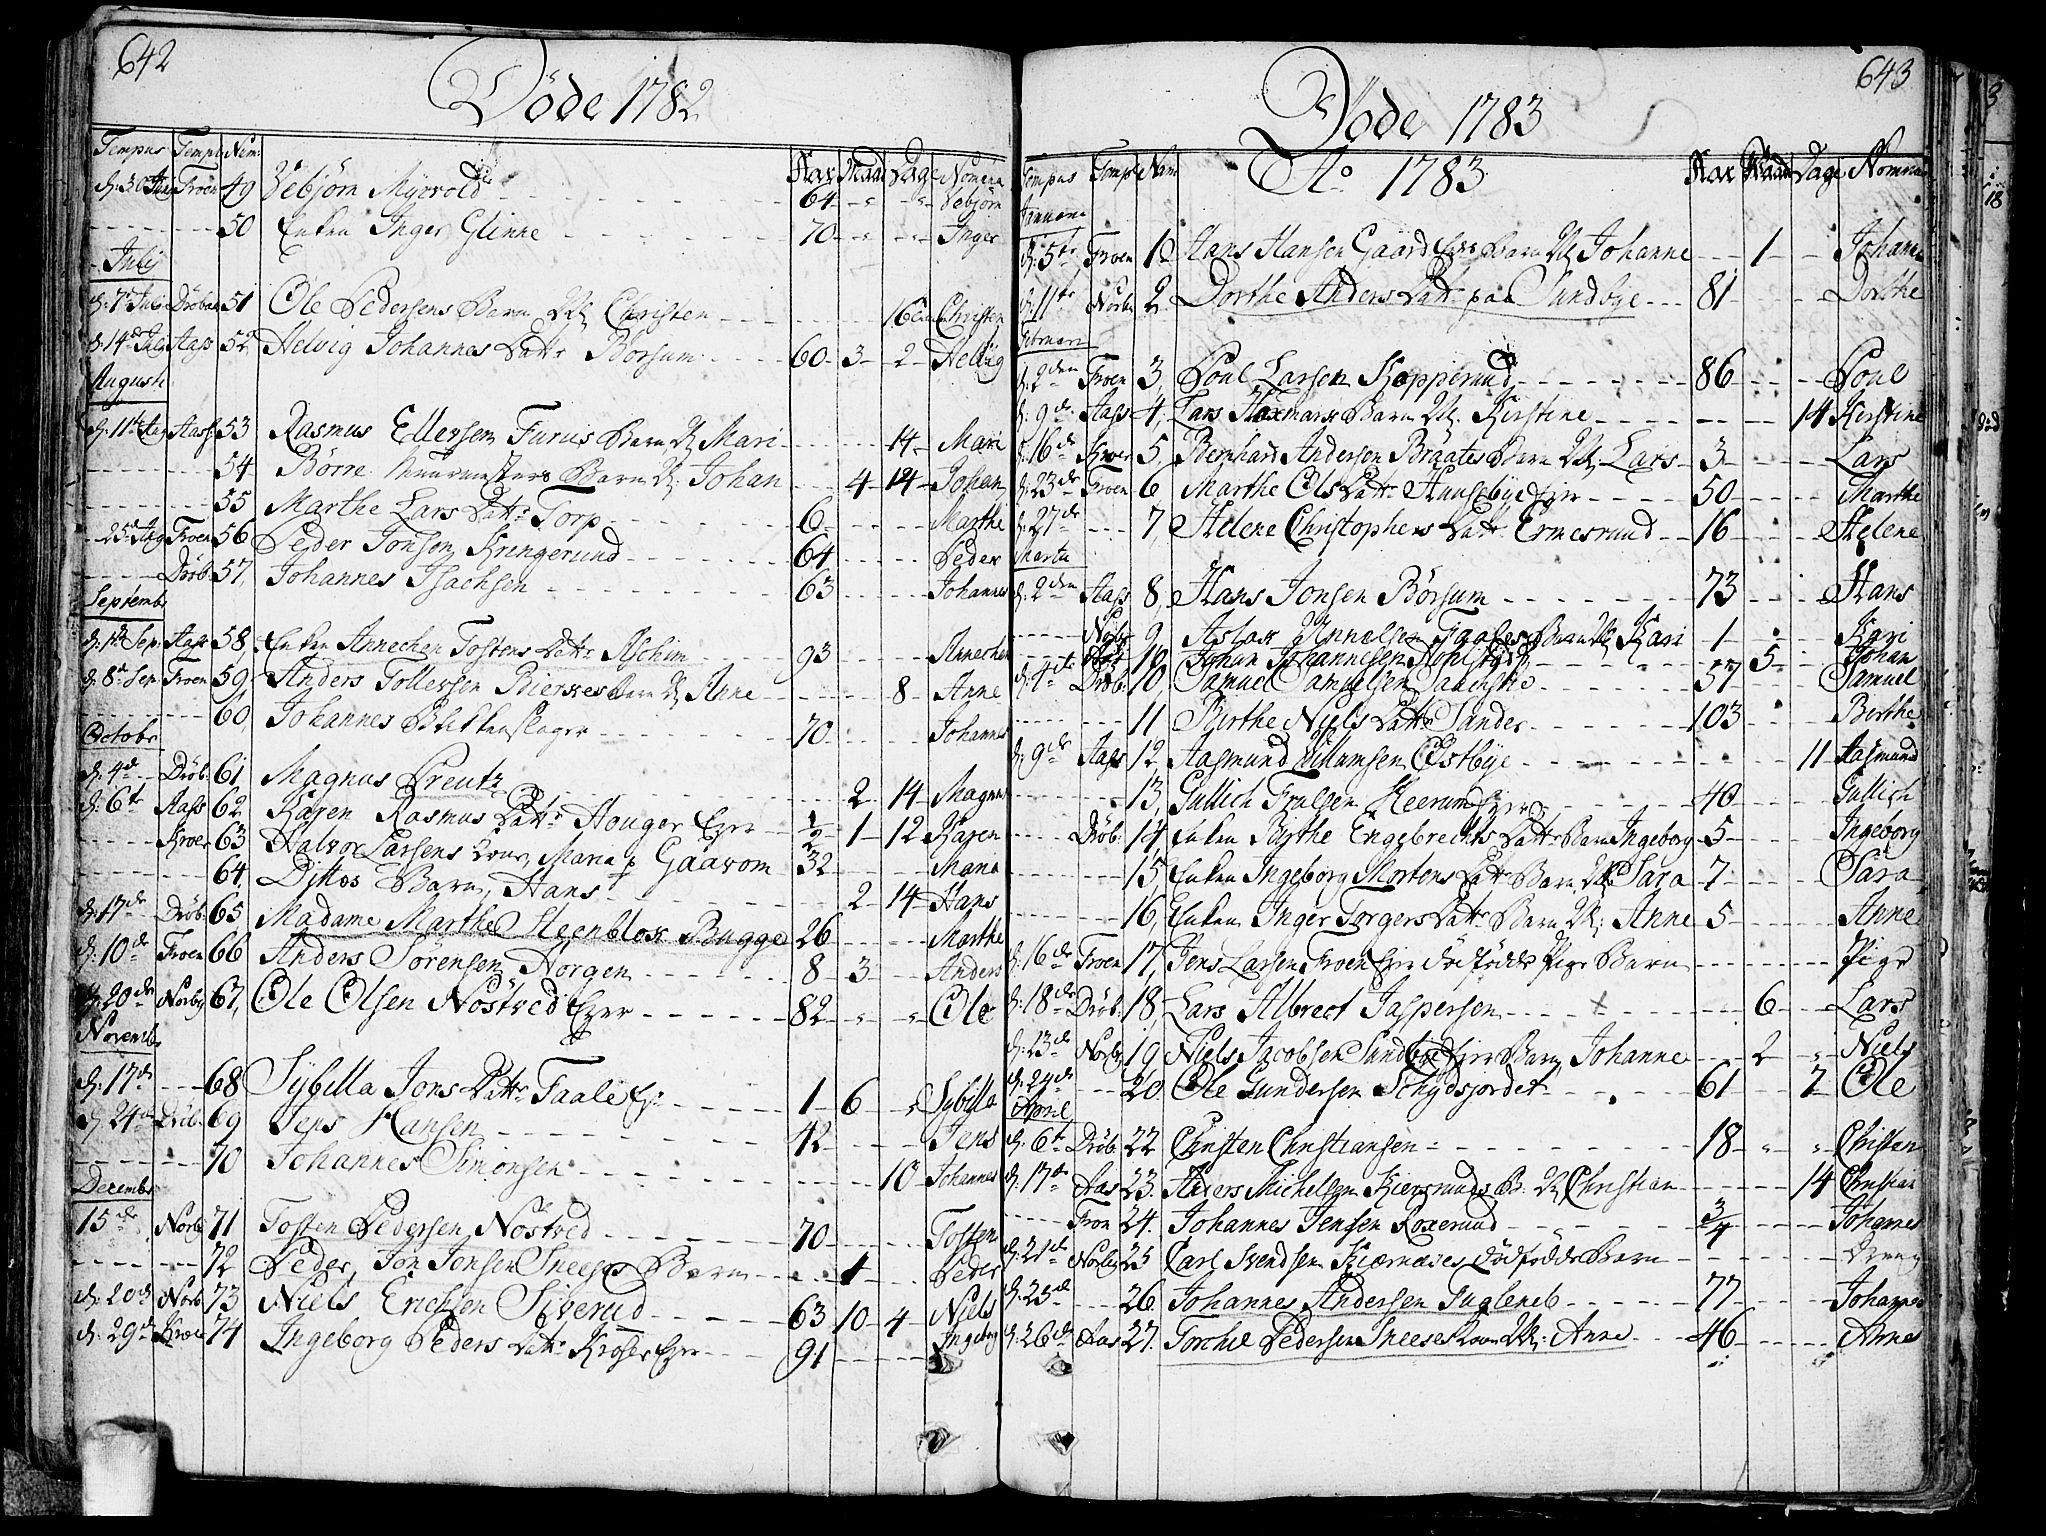 642
Döde 1782
Tempus Templ Num: Aar Maan Dage Nomina
d: 30 Jun Froen 49 Vebjörn Myrvold 64 Vebjörn
50 Enken Inger Glinne 70 Inger
Julij
d: 7de Julii Dröbak 51 Ole Pedersens Barn Christen 16 Christen
d: 14de Jul Aass 52 Helvig Johannes Datt: Börsum 60 3 2 Helvig
Augusti
d: 11te Aug Aass 53 Rasmus Ellefsen Furus Barn Mari 14 Mari
54 Börre Muurmesters Barn Johan 4 14 Johan
55 Marthe Lars Datt: Torp 6 Marthe
25de Aug Froen 56 Peder Jonsen Kringerund 64 Peder
Dröb: 57 Johannes Isachsen 63 Johannes
Septembr
d: 1ste Sep. Aass 58 Enken Annechen Tostens Datt: Aschim 93 Annechen
d: 8de Sep. Froen 59 Anders Tollefsen Bierkes Barn Anne 8 Anne
60 Johannes Blikkenslager 70 Johannes
Octobr
d: 4de Dröb: 61 Magnus Preutz 2 14 Magnus
d: 6te Aass 62 Karen Rasmus Datt: Houger Ejer 1/2 1 12 Karen
Kroer 63 Halvor Larsens Kone Maria p Gaarom 32 Maria
64 Dittos Barn, Hans 2 14 Hans
d: 17de Dröb: 65 Madame Marthe Steenblox Bugge 26 Marthe
d: 10de Froen 66 Anders Sörensen Norgen 8 3 Anders
d: 20de Norby 67 Ole Olsen Nöstved Ejer 82 Ole
Novembr
d: 17de 68 Sybilla Jons Datt: Taale Ej: 1 6 Sybilla
d: 24de Dröb: 69 Jens Hansen 42 Jens
70 Johannes Simonsen 10 Johannes
Decembr
15de Norby 71 Tosten Pedersen Nöstved 70 Tosten
72 Peder, Jon Jonsen Sneeses Barn 1 Peder
d: 20de Norb 73 Niels Erichsen Siverud 63 10 4 Niels
d: 29de Kroer 74 Ingeborg Peders Datt: Kroser Ejer 91 Ingeborg
643
Döde 1783
Tempus Templ Num Ao 1783 Aar Maan Dage Nomina
Januari
d: 5te Froen 1 Hans Hansen Gaard Ejers Barn Johanne 1 Johanne
d: 11te Norbye 2 Dorthe Anders Datt: paa Sundbye 81 Dorthe
Februari
d: 2den Froen 3 Poul Larsen Kopperud 86 Poul
d: 9de Aass 4 Lars Barn Kirstine 14 Kirstine
d: 16de Kroer 5 Bernhard Andersen Braates Barn Lars 3 Lars
d: 23de Froen 6 Marthe Ols Datt: Huusebye Ejer 50 Marthe
d: 27de 7 Helene Christophers Datt: Ermesrund 16 Helene
Martii
d: 2den Aass 8 Hans Jonsen Börsum 73 Hans
Norb: 9 Aslax Barn Kari 1 Kari
10 Johan Johannesen 5 Johan
d: 4de Dröb: 10 Samuel Samuelsen 57 Samuel
11 Birthe Niels Datt: Sander 103 Birthe
d: 9de Aass 12 Aasmund Östbye 11 Aasmund
13 Gullich Heerum Ejer 40 Gullich
Dröb: 14 Enken Birthe Engebrechts Datt: Barn Ingeborg 5 Ingeborg
15 Enken Ingeborg Mortens Datt: Barn Sara 7 Sara
16 Enken Inger Torgers Datt: Barn Anne 5 Anne
d: 16de Froen 17 Jens Larsen Froen Ejer dödfödde Pige Barn Pige
d: 18de Dröb: 18 Lars Albrect Jaspersen 6 Lars
d: 23de Norby 19 Niels Jacobsen Sundbye Ejer Barn Johanne 2 Niels
d: 24de 20 Ole Gundersen Schydsjordet 61 7 Ole
April
d: 6te Dröb: 22 Christen Christiansen 18 Christen
d: 17de Aas 23 Anders Michelsen Kiersruds B: Christian 14 Christian
Fron 24 Johannes Jensen Roxerud 3/4 Johannes
d: 21de Norby 25 Carl Svendsen Kiærnæses dödfödde Barn Dreng
d: 25de 26 Johannes Andersen Fugleneb 77 Johannes
d: 26de Aas 27 Torchil Pedersen Sneeses Kone Anne 46 Anne